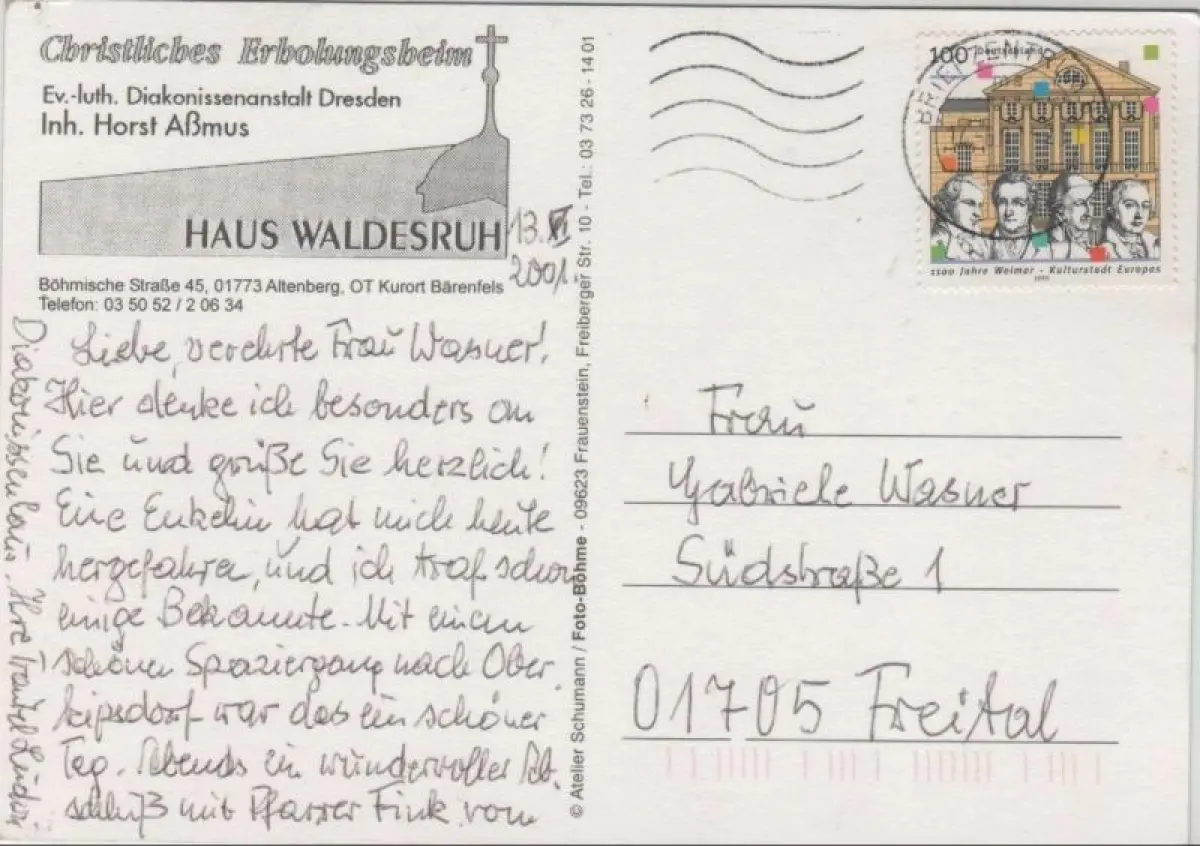 Christliches Erholungsheim
Ev.-luth. Diakonissenanstalt Dresden
Inh. Horst Aßmus
HAUS WALDESRUH
Böhmische Straße 45, 01773 Altenberg, OT Kurort Bärenfels
Telefon: 03 50 52 / 2 06 34
13. VI
2001.
Liebe, verehrte Frau Wasner!
Hier denke ich besonders an
Sie und grüße Sie herzlich!
Eine Enkelin hat mich heute
hergefahren, und ich traf schon
einige Bekannte. Mit einem
schönen Spaziergang nach Ober
kipsdorf war das ein schöner
Tag. Abends ein wundervoller Ab-
schluß mit Pfarrer Fink vom
Diakonissenhaus. Ihre Trautel
© Atelier Schumann / Foto-Böhme - 09623 Frauenstein, Freiberger Str. 10 - Tel.: 03 73 26 - 14 01
100 Deutschland
BRIEFZENTRUM
1100 Jahre Weimar - Kulturstadt Europas
1999
Frau
Gabriele Wasner
Südstraße 1
01705 Freital